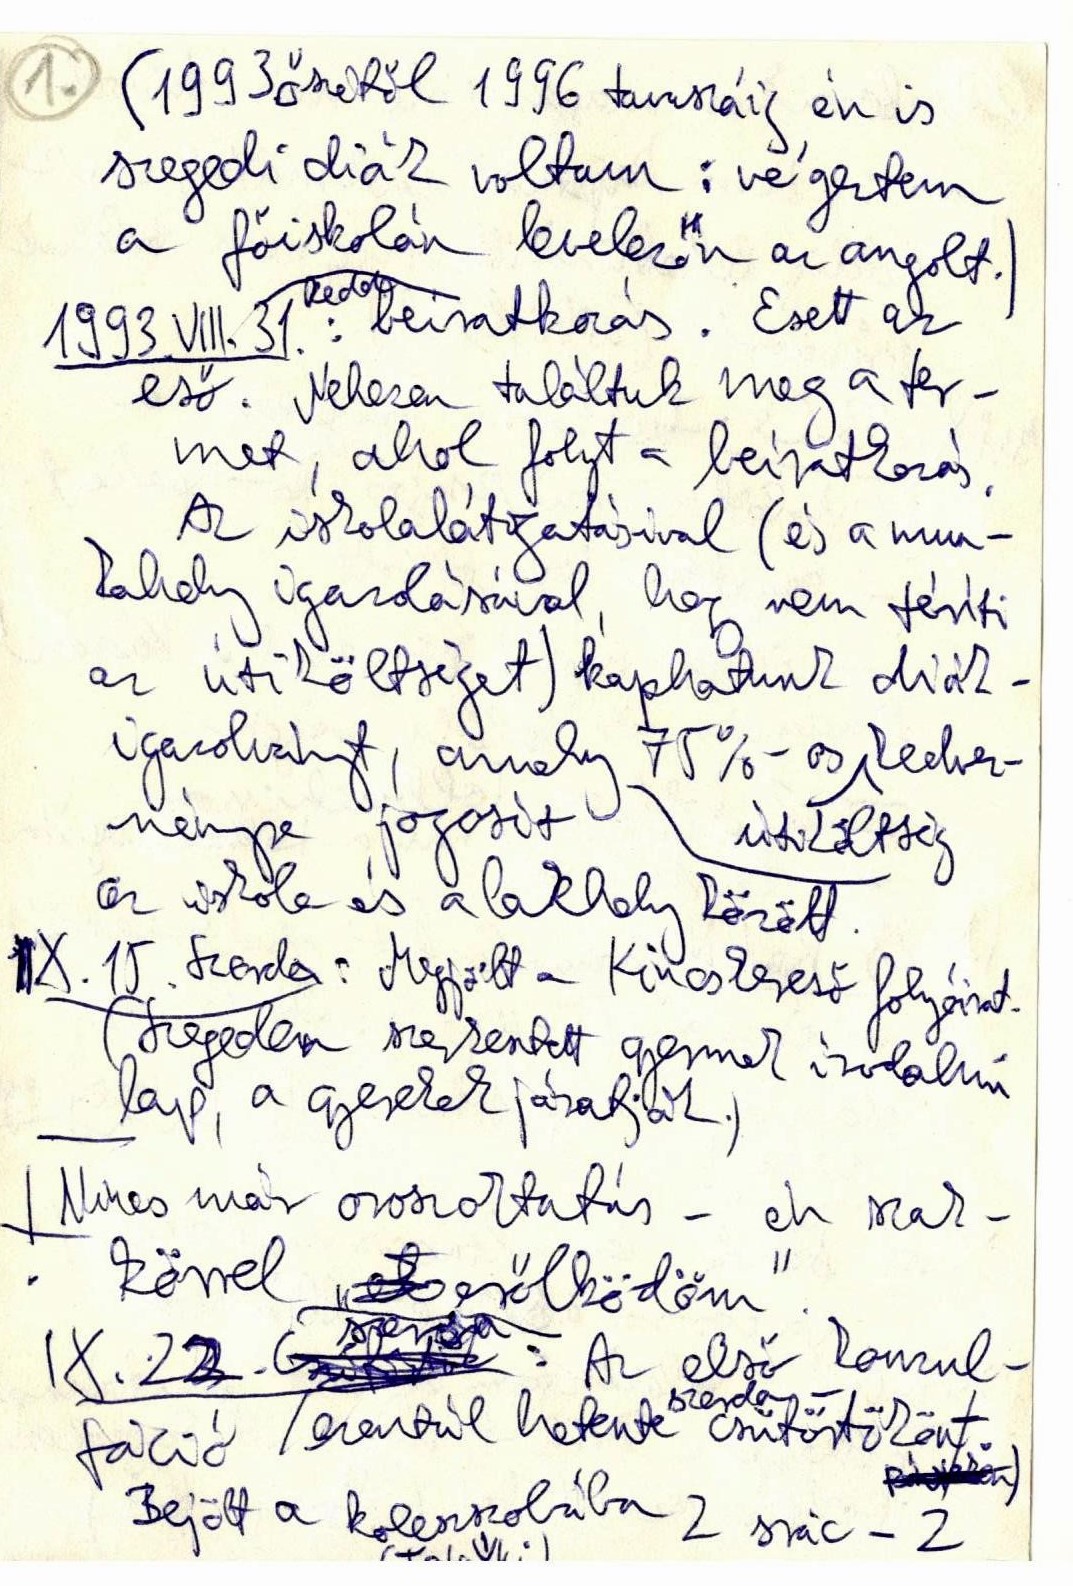 1.
(1993 őszétől 1996 tavaszáig én is
szegedi diák voltam: végeztem
a főiskolán levelezőn az angolt.)
kedd
1993. VIII. 31.: beiratkozás. Esett az
eső. Nehezen találtuk meg a ter-
met, ahol folyt a beiratkozás.
Az iskolalátogatásival (és a mun-
kahely igazolásával, hogy nem téríti
az útiköltséget) kaphatunk diák-
igazolványt, amely 75%-os kedvez-
ményre jogosít útiköltség
az iskola és a lakhely között.
IX. 15. Szerda: Megjött a Kincskereső folyóirat.
(Szegeden szerkesztett gyermek irodalmi
lap, a gyerekek járatják.)
Nincs már oroszoktatás – én szak-
körrel „esőlködöm”.
szerda
IX. 22. : Az első konzul-
táció /ezentúl hetente szerda –
csütörtökönt.)
Bejött a koleszszobába 2 srác – 2